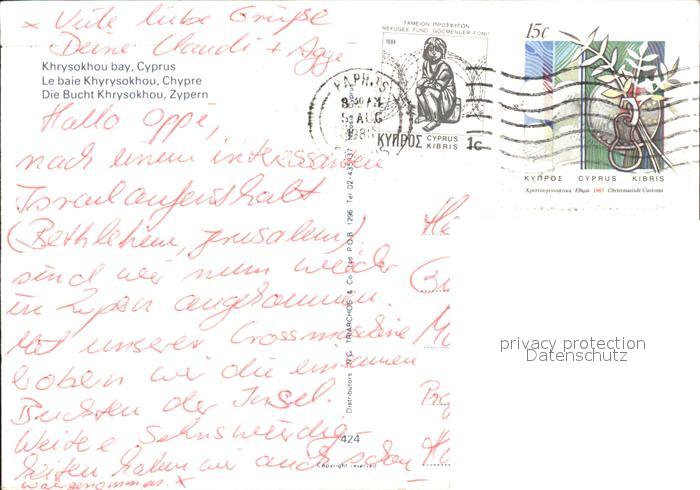 x Viele liebe Grüße
Deine Claudi + Agge
Khrysokhou bay, Cyprus
Le baie Khyrysokhou, Chypre
Die Bucht Khrysokhou, Zypern
Hallo Oppe,
nach einem interessanten
Israelaufenthalt
(Bethlehem, Jerusalem)
sind wir nun wieder
in Zypern angekommen.
Mit unserer Crossmaschine
haben wir die einsamen
Buchten der Insel.
Weitere Sehnswürdig-
keiten haben wir auch schon
wahrgenommen. x
ΤΑΜΕΙΟΝ ΠΡΟΣΦΥΓΩΝ
REFUGEE FUND GÖÇMENLER FONU
1984
ΚΥΠΡΟΣ CYPRUS KIBRIS 1c
PAPHOS
8 30 AM
5 AUG
198
15c
ΚΥΠΡΟΣ CYPRUS KIBRIS
Χριστουγεννιάτικα Έθιμα 1987 Christmastide Customs
Distributors: G. TRIARCHOS & Co Ltd P.O.B. 1296 Tel 02-43
424
Copyright reserved
privacy protection
Datenschutz